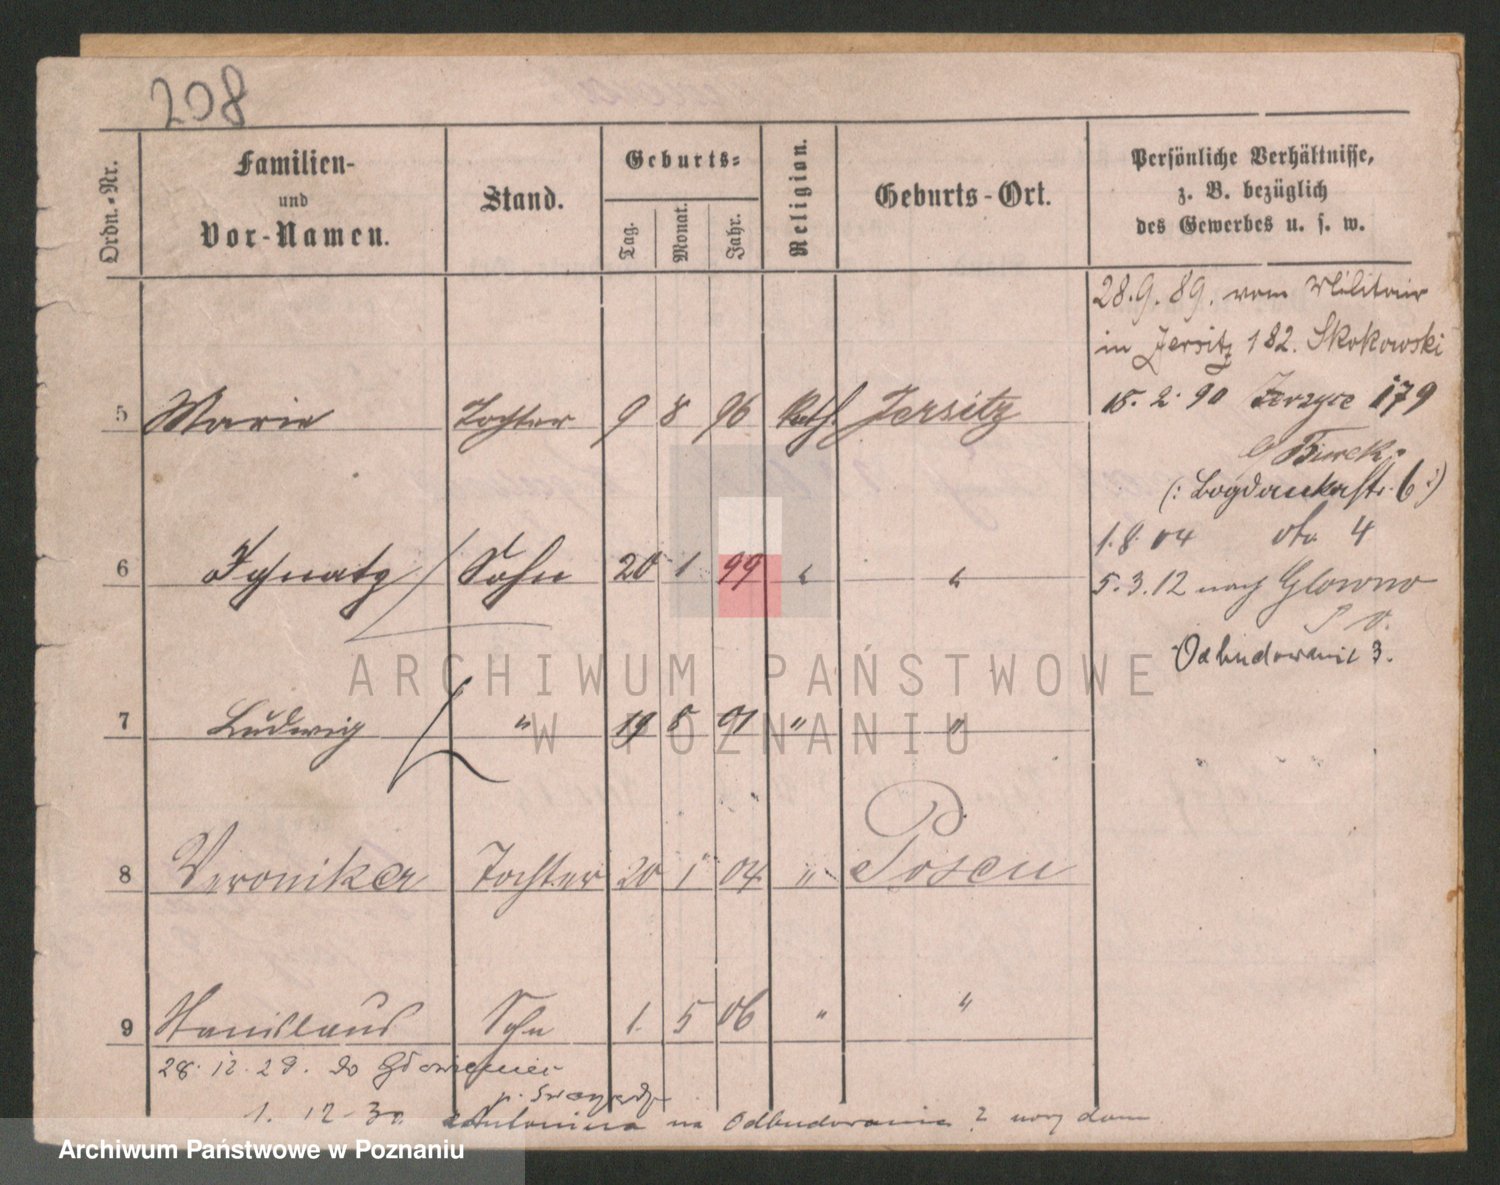 208
Ordn.-Nr.
Familien-
und
Vor-Namen.
Stand.
Geburts-
Tag.
Monat.
Jahr.
Religion.
Geburts-Ort.
Persönliche Verhältnisse,
z. B. bezüglich
des Gewerbes u. s. w.
28.9.89. vom Militair
in Jersitz 182. Skokowski
5 Marie Tochter 9 8 96 kath Jersitz
15. 2. 90 Jerzyce 179
(: Bogdankastr. 6 :)
6 Ignatz Sohn 20 1 99 " "
1. 8. 04 dto 4
5. 3. 12 nach Glowno
Odbudowanie 3.
7 Ludwig " 19 8 01 " "
8 Veronika Tochter 20 1 04 " Posen
9 Stanislaus Sohn 1. 5 06 " "
28. 12. 29. do
1. 12 30 Antonina na Odbudowanie 2 nowy dom
ARCHIWUM PAŃSTWOWE
W POZNANIU
Archiwum Państwowe w Poznaniu